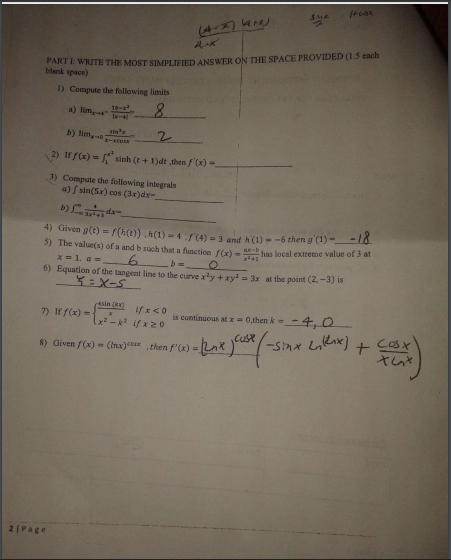 (4-x) (4+x)
4-x
PART I: WRITE THE MOST SIMPLIFIED ANSWER ON THE SPACE PROVIDED (1.5 each
blank space)
1) Compute the following limits
a) lim x→4⁻ (16-x²)/|x-4| = 8
b) lim x→0 sin²x/(x-xcosx) = 2
2) If f(x) = ∫₁^(x²) sinh (t + 1)dt ,then f'(x) =
3) Compute the following integrals
a) ∫ sin(5x) cos (3x)dx=
b) dx=
4) Given g(t) = f(h(t)) , h(1) = 4 , f'(4) = 3 and h'(1) = -6 then g'(1) = -18
5) The value(s) of a and b such that a function f(x) = (ax-b)/(x²+1) has local extreme value of 3 at
x = 1. a = 6 b = 0
6) Equation of the tangent line to the curve x²y + xy² = 3x at the point (2,-3) is
Y = X-5
7) If f(x) = { 4sin (kx)/x if x < 0
x² - k² if x ≥ 0 is continuous at x = 0,then k = -4, 0
8) Given f(x) = (lnx)^cosx ,then f'(x) = (Lnx)^cosx (-Sinx Ln(Lnx) + Cosx/(x Lnx))
2 | Page